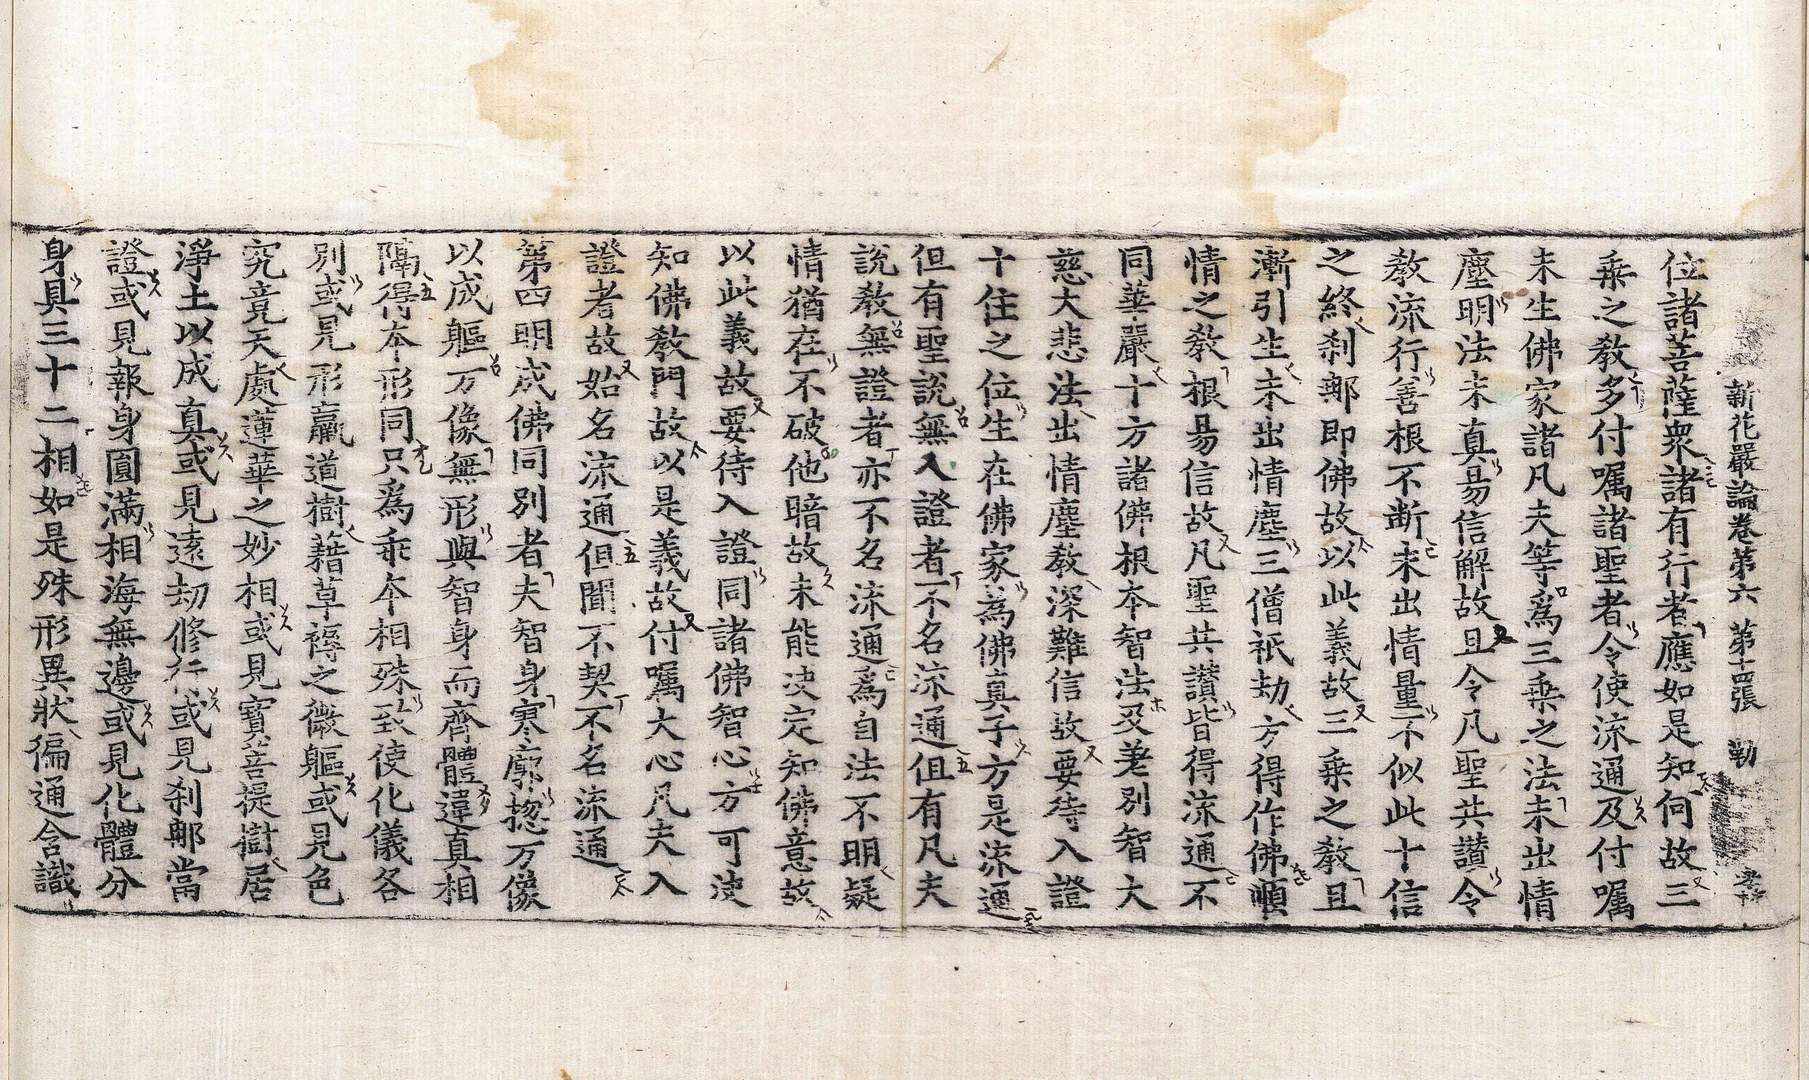 新花嚴論卷第六 第十四張 勒
位諸菩薩衆諸有行者應如是知何故三
乘之教多付囑諸聖者令使流通及付囑
未生佛家諸凡夫等爲三乘之法未出情
塵明法未真易信解故且令凡聖共讃令
教流行善根不断未出情量不似此十信
之終刹那即佛故以此義故三乘之教且
漸引生未出情塵三僧祇劫方得作佛順
情之教根易信故凡聖共讃皆得流通不
同華嚴十方諸佛根本智法及差別智大
慈大悲法出情塵教深難信故要待入證
十住之位生在佛家為佛真子方是流通
但有聖說無入證者不名流通但有凡夫
說教無證者亦不名流通爲自法不明疑
情猶在不破他暗故未能决定知佛意故
以此義故要待入證同諸佛智心方可逹
知佛教門故以是義故付囑大心凡夫入
證者故始名流通但聞不契不名流通
第四明成佛同別者夫智身寥廓揔万像
以成軀万像無形與智身而齊體違真相
隔得本形同只爲乖本相殊致使化儀各
別或見形羸道樹藉草褥之微軀或見色
究竟天處蓮華之妙相或見寳菩提樹居
淨土以成真或見遠劫修行或見刹那當
證或見報身圓滿相海無邊或見化體分
身具三十二相如是殊形異狀徧通含識